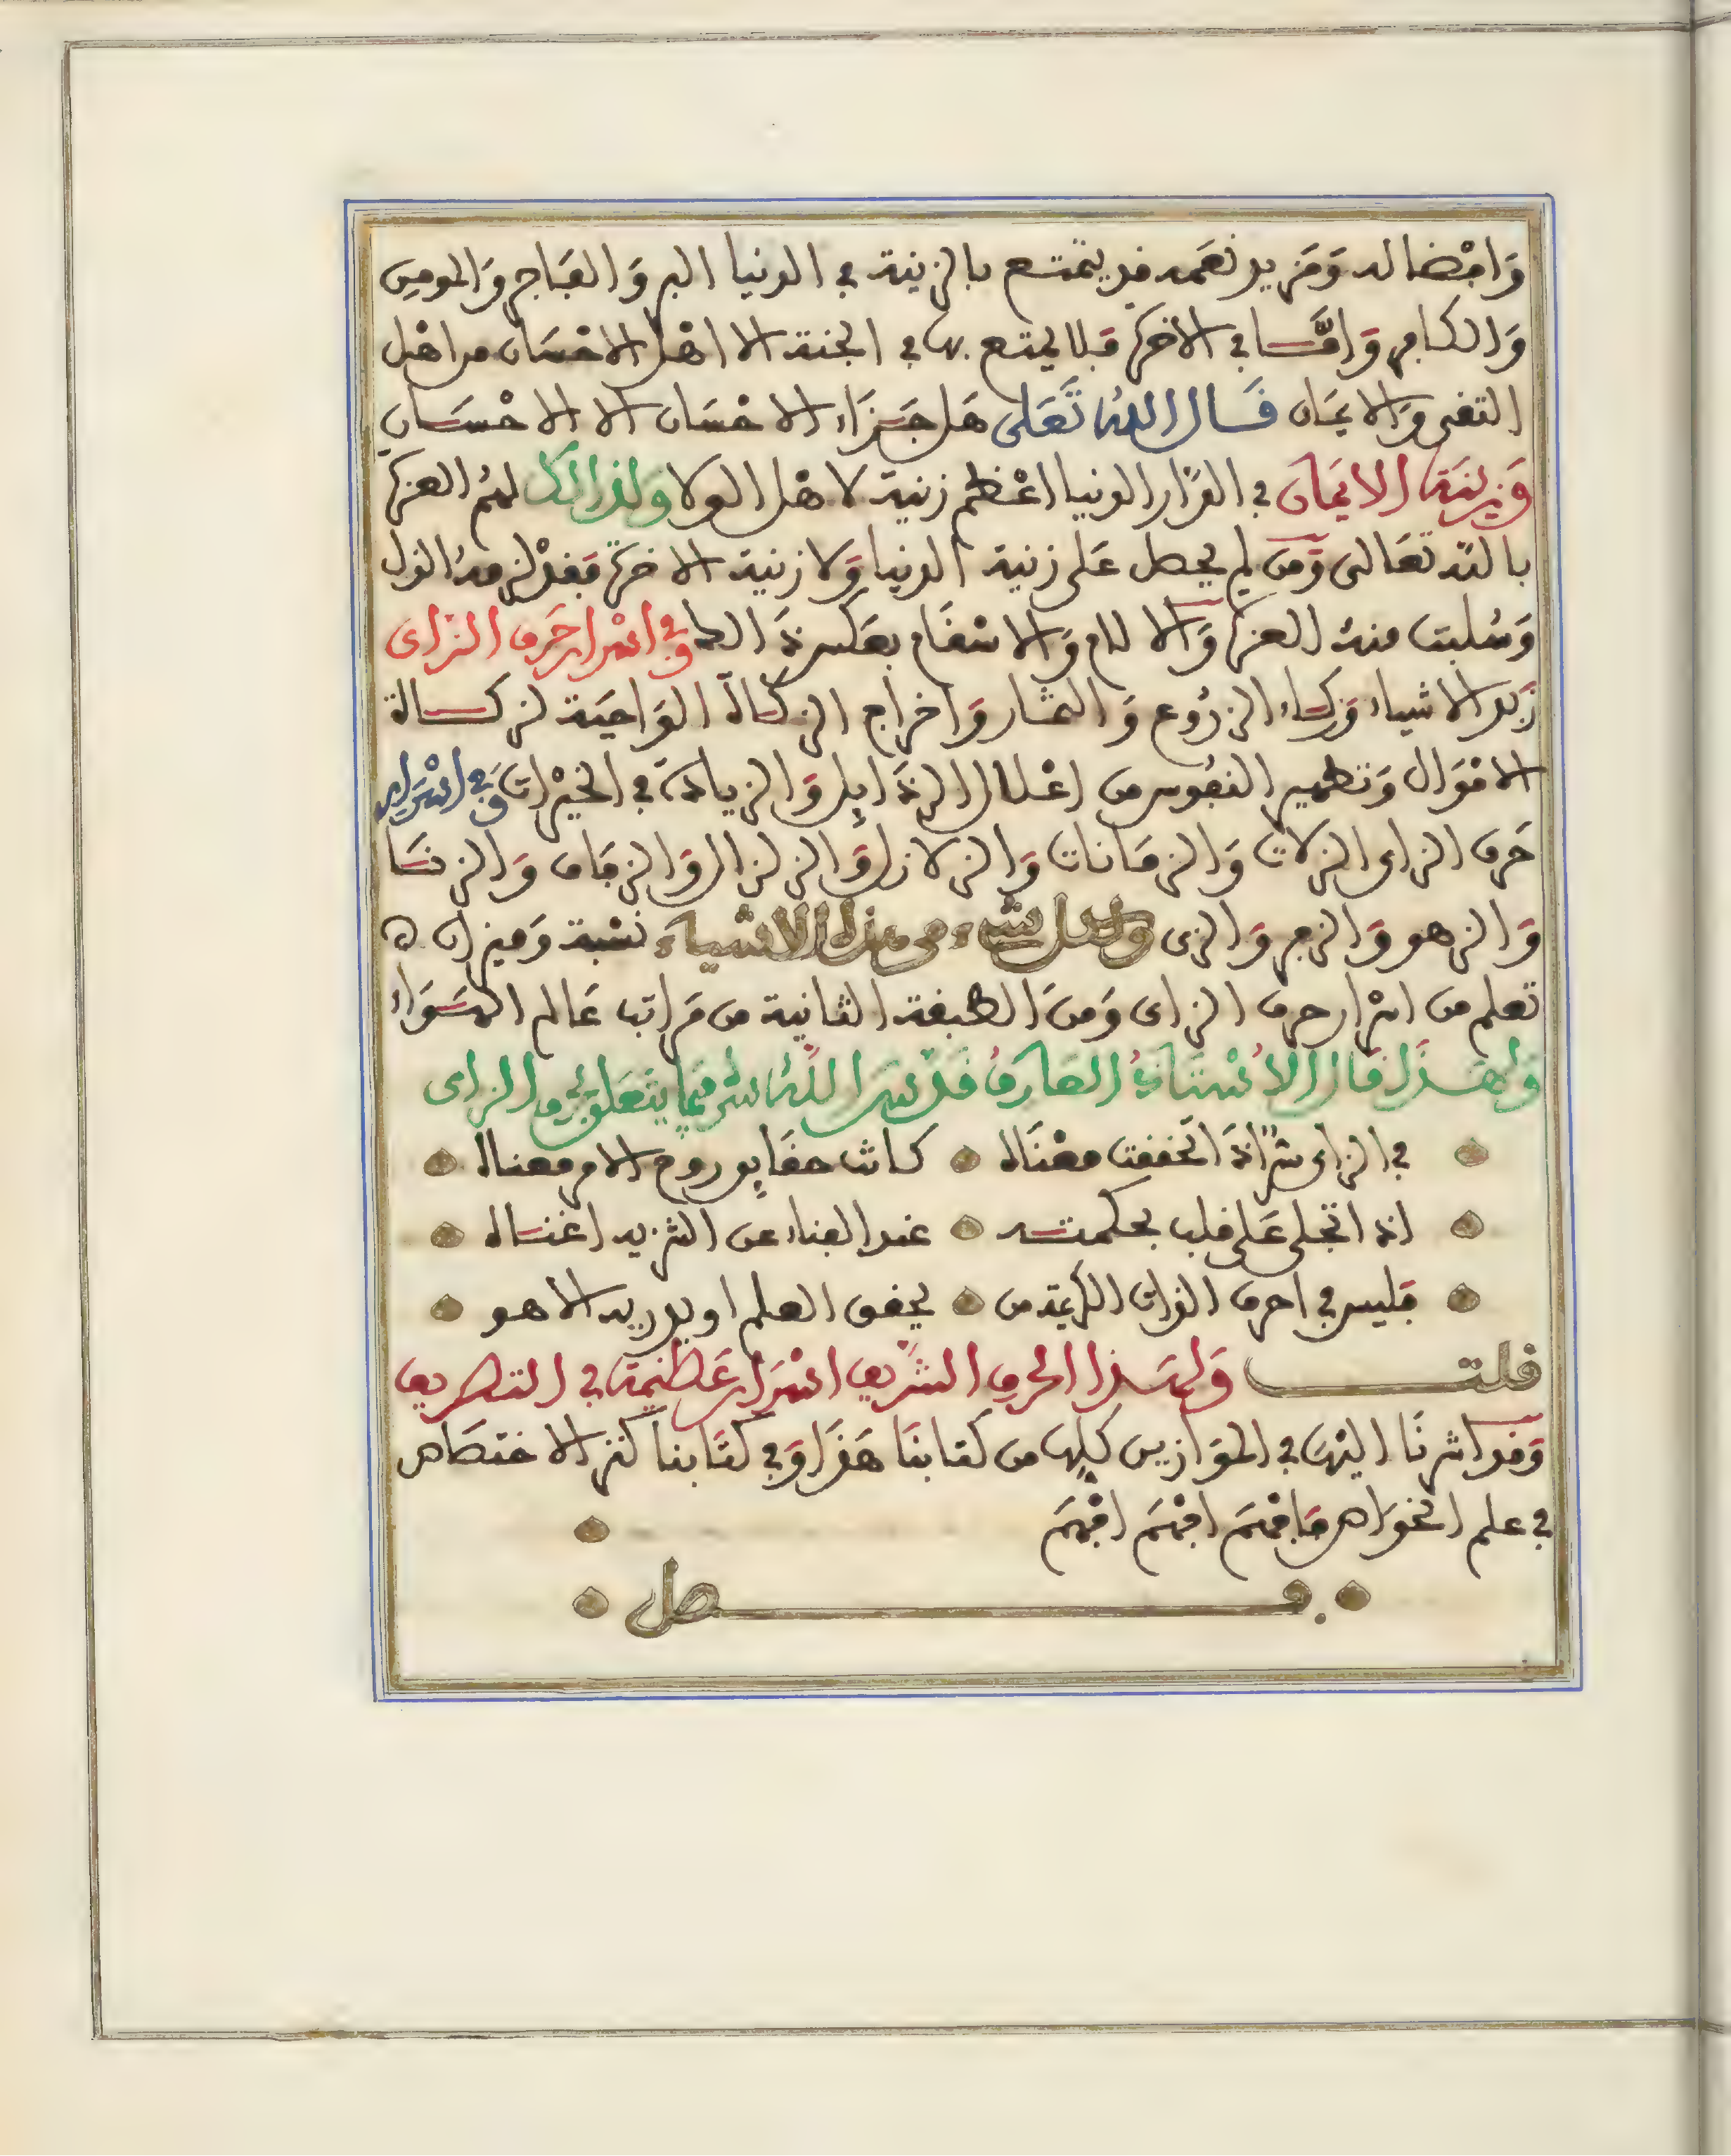 وَافضاله وَمَزيد نعَمه فد يتمتع بالزينة في الدنيا البر وَالفَاجر وَالمومن
وَالكافر وَامَّا في الاخرة فَلا يتمتع بها في الجنة الا اهْل الاحْسَان من اهْل
التفى وَالايمَان قَال اللهُ تَعَلى هَل جَزَاء الاحْسَان الا الاحْسَان
وَزينَة الايمَان في الدَّار الدنيا اعْظم زينة لاهْل الولا وَلذالك لهُم العزة
بالله تعَالى وَمَن لم يحصل عَلى زينة الدنيا وَلا زينة الاخرة فَفدْ لزمهُ الذل
وَسُلبت منهُ العزة وَالالام وَالاسْفَام بعَكس ذَالك وفي اسْرار حَرف الزاى
زَبد الاشياء وَزكاء الزرُوع وَالثمَار وَاخرَاج الزكاة الوَاجبَة لزكاة
الامْوَال وَتطهير النفُوس من اعْلال الرذَايل وَالزيادَة في الخيْرات وَفي اسْرَار
حَرف الزاى الزلات وَالزمَانات وَالزلازل وَالزلزال وَالزفاف وَالزنَا
وَالزهو وَالزجر وَالزى وَلكل شيء من هذه الاشيَاء نسْبة وَميزان
تعلم من اسْرار حرف الزاى وَمنَ الطبفة الثانية من مَراتب عَالم الهَوَاء
وَلهَذَا قالَ الاسْتَاذُ العَارفُ قَدسَ اللهُ سره فيمَا يتعَلق بحرف الزاى
في الزاى سرٌّ اذَا تحففت معْنَاه كانت حفَايق روح الامر معناه
اذا تجلى عَلى فلب بحكمته عند الفناء عن التنزيه اغناه
فَليس في احرف الذات الكريمة من يحفق العلم او يدريه الا هو
فلت وَلهَذا الحرف الشَّريف اسْرَار عَظيمَة في التصريف
وَفد اشرنَا اليْهَا في الموَازين كلهَا من كتابنَا هَذَا وَفي كتَابنَا كنز الاختصَاص
في علم الخوَاص فَافْهَم افْهَم افْهَم
فصل